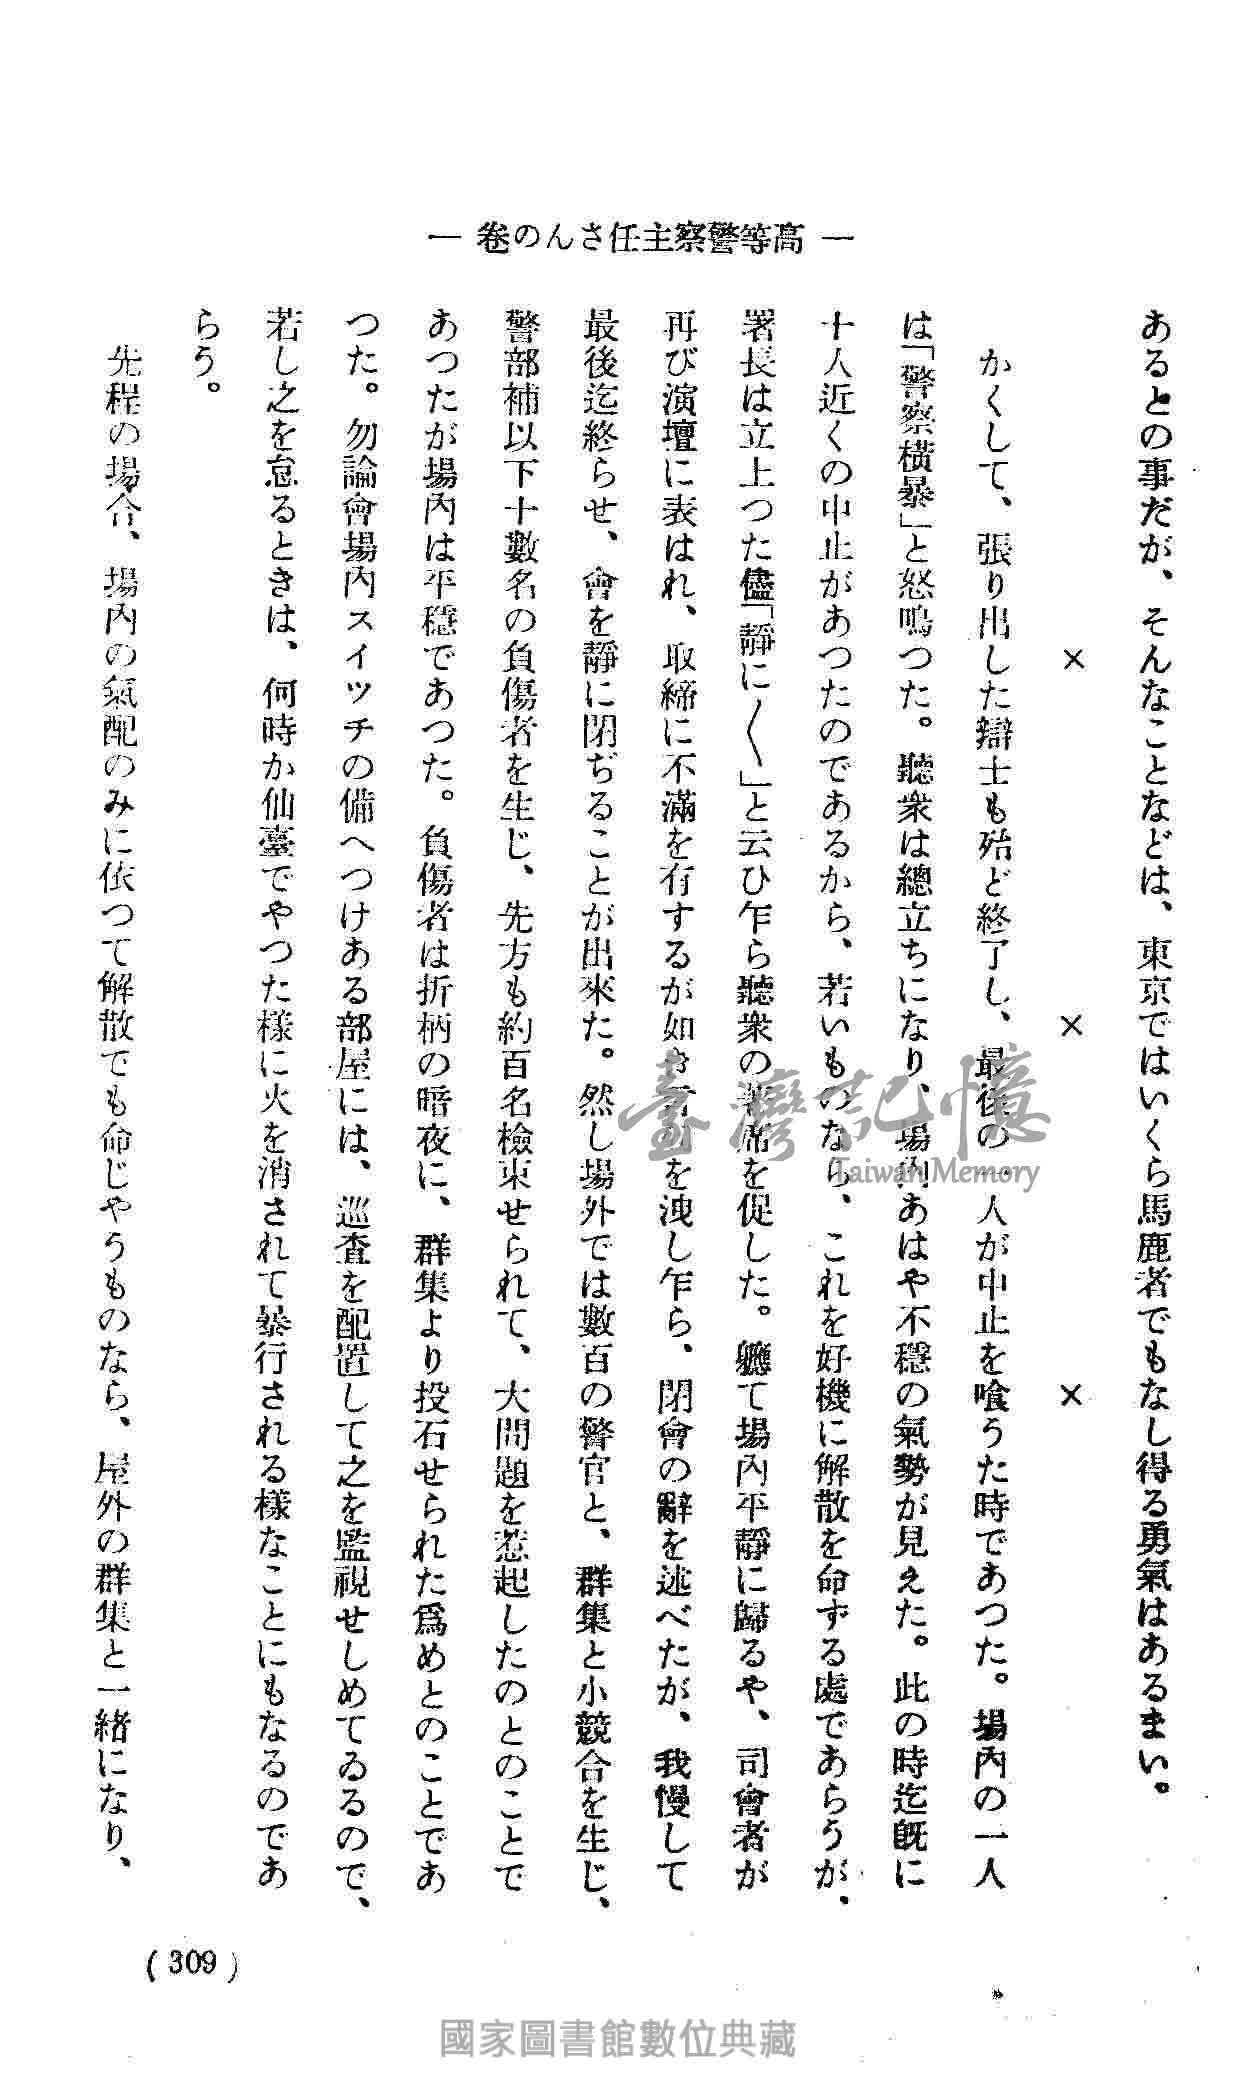 ― 高等警察主任さんの卷 ―
あるとの事だが、そんなことなどは、東京ではいくら馬鹿者でもなし得る勇氣はあるまい。
× × ×
かくして、張り出した辯士も殆ど終了し、最後の一人が中止を喰うた時であつた。場內の一人
は「警察橫暴」と怒鳴つた。聽衆は總立ちになり、場內あはや不穩の氣勢が見えた。此の時迄既に
十人近くの中止があつたのであるから、若いものなら、これを好機に解散を命ずる處であらうが、
署長は立上つた儘「靜に〱」と云ひ乍ら聽衆の著席を促した。軈て場內平靜に歸るや、司會者が
再び演壇に表はれ、取締に不滿を有するが如き言を洩し乍ら、閉會の辭を述べたが、我慢して
最後迄終らせ、會を靜に閉ぢることが出來た。然し場外では數百の警官と、群集と小競合を生じ、
警部補以下十數名の負傷者を生じ、先方も約百名檢束せられて、大問題を惹起したのとのことで
あつたが場內は平穩であつた。負傷者は折柄の暗夜に、群集より投石せられた爲めとのことであ
つた。勿論會場內スイッチの備へつけある部屋には、巡査を配置して之を監視せしめてゐるので、
若し之を怠るときは、何時か仙臺でやつた樣に火を消されて暴行される樣なことにもなるのであ
らう。
先程の場合、場內の氣配のみに依つて解散でも命じやうものなら、屋外の群集と一緒になり、
(309)
臺灣記憶
Taiwan Memory
國家圖書館數位典藏